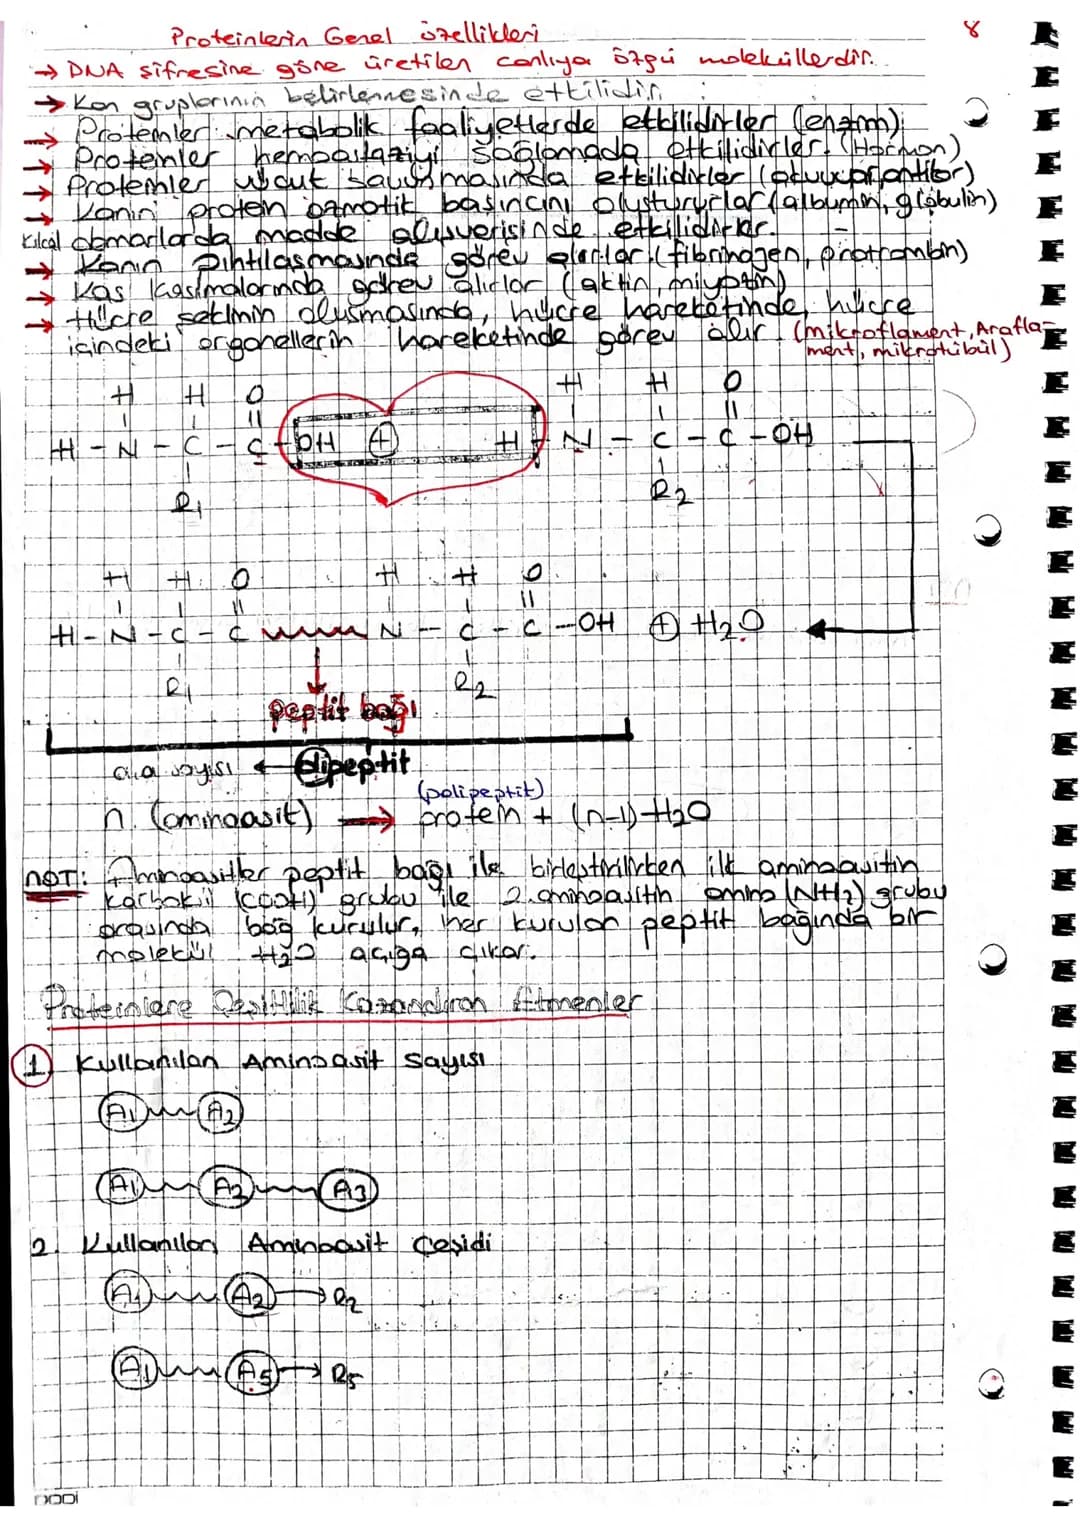 8
Proteinlerin Genel özellikleri
→ DNA şifresine göre üretilen canlıya özgü moleküllerdir.
→ Kan gruplarının belirlenmesinde etkilidir.
→ Proteinler metabolik faaliyetlerde etkilidirler (enzim)
→ Proteinler hemoostaziyi sağlamada etkilidirler. (Hormon)
→ Proteinler vücut savunmasında etkilidirler (antibor)
→ Kanın protein ozmotik basıncını oluştururlar (albumin, globulin)
Kılcal damarlarda madde alışverişinde etkilidirler.
→ Kanın pıhtılaşmasında görev alırlar (fibrinojen, protrombin)
→ Kas kasılmalarında görev alırlar (aktin, miyozin)
→ Hücre şeklinin oluşmasında, hücre hareketinde, hücre
içindeki organellerin hareketinde görev alır. (mikroflament, Arafla-
ment, mikrotübül)
H H O H H O
H - N - C - C - OH ⊕ H - N - C - C - OH
R1 R2
H H O H H O
H - N - C - C N - C - C - OH ⊕ H2O
R1 R2
peptit bağı
a.a sayısı ← dipeptit
(polipeptit)
n. (aminoasit) → protein + (n-1) H2O
NOT: Aminoasitler peptit bağı ile birleştirilirken ilk aminoasitin
karboksil (COOH) grubu ile 2.aminoasitin amino (NH2) grubu
arasında bağ kurulur, her kurulan peptit bağında bir
molekül H2O açığa çıkar.
Proteinlere Çeşitlilik Kazandıran Etmenler
1 Kullanılan Aminoasit sayısı
A1 A2
A1 A2 A3
2. Kullanılan Aminoasit çeşidi
A1 A2 → R2
A1 A5 → R5